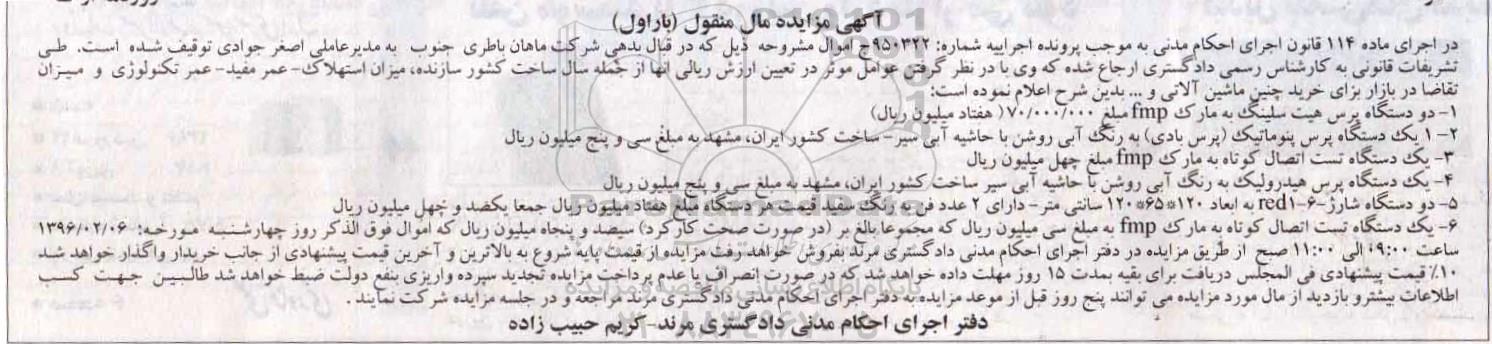 آگهی مزایده مال منقول (باراول)
در اجرای ماده ۱۱۴ قانون اجرای احکام مدنی به موجب پرونده اجراییه شماره: ۹۵۰۳۲۲ج اموال مشروحه ذیل که در قبال بدهی شرکت ماهان باطری جنوب به مدیرعاملی اصغر جوادی توقیف شده است. طی
تشریفات قانونی به کارشناس رسمی دادگستری ارجاع شده که وی با در نظر گرفتن عوامل موثر در تعیین ارزش ریالی آنها از جمله سال ساخت کشور سازنده، میزان استهلاک- عمر مفید- عمر تکنولوژی و میزان
تقاضا در بازار برای خرید چنین ماشین آلاتی و ... بدین شرح اعلام نموده است:
۱- دو دستگاه پرس هیت سلینگ به مارک fmp مبلغ ۷۰/۰۰۰/۰۰۰( هفتاد میلیون ریال)
۲- ۱ یک دستگاه پرس پنوماتیک (پرس بادی) به رنگ آبی روشن با حاشیه آبی سیر- ساخت کشور ایران، مشهد به مبلغ سی و پنج میلیون ریال
۳- یک دستگاه تست اتصال کوتاه به مارک fmp مبلغ چهل میلیون ریال
۴- یک دستگاه پرس هیدرولیک به رنگ آبی روشن با حاشیه آبی سیر ساخت کشور ایران، مشهد به مبلغ سی و پنج میلیون ریال
۵- دو دستگاه شارژ-۶-red۱ به ابعاد ۱۲۰*۶۵*۱۲۰ سانتی متر- دارای ۲ عدد فن به رنگ سفید قیمت هر دستگاه مبلغ هفتاد میلیون ریال جمعا یکصد و چهل میلیون ریال
۶- یک دستگاه تست اتصال کوتاه به مارک fmp به مبلغ سی میلیون ریال که مجموعا بالغ بر (در صورت صحت کارکرد) سیصد و پنجاه میلیون ریال که اموال فوق الذکر روز چهارشنبه مورخه: ۱۳۹۶/۰۲/۰۶
ساعت ۰۹:۰۰ الی ۱۱:۰۰ صبح از طریق مزایده در دفتر اجرای احکام مدنی دادگستری مرند بفروش خواهد رفت مزایده از قیمت پایه شروع به بالاترین و آخرین قیمت پیشنهادی از جانب خریدار واگذار خواهد شد
۱۰٪ قیمت پیشنهادی فی المجلس دریافت برای بقیه بمدت ۱۵ روز مهلت داده خواهد شد که در صورت انصراف یا عدم پرداخت مزایده تجدید سپرده واریزی بنفع دولت ضبط خواهد شد طالبین جهت کسب
اطلاعات بیشتر و بازدید از مال مورد مزایده می توانند پنج روز قبل از موعد مزایده به دفتر اجرای احکام مدنی دادگستری مرند مراجعه و در جلسه مزایده شرکت نمایند .
دفتر اجرای احکام مدنی دادگستری مرند- کریم حبیب زاده